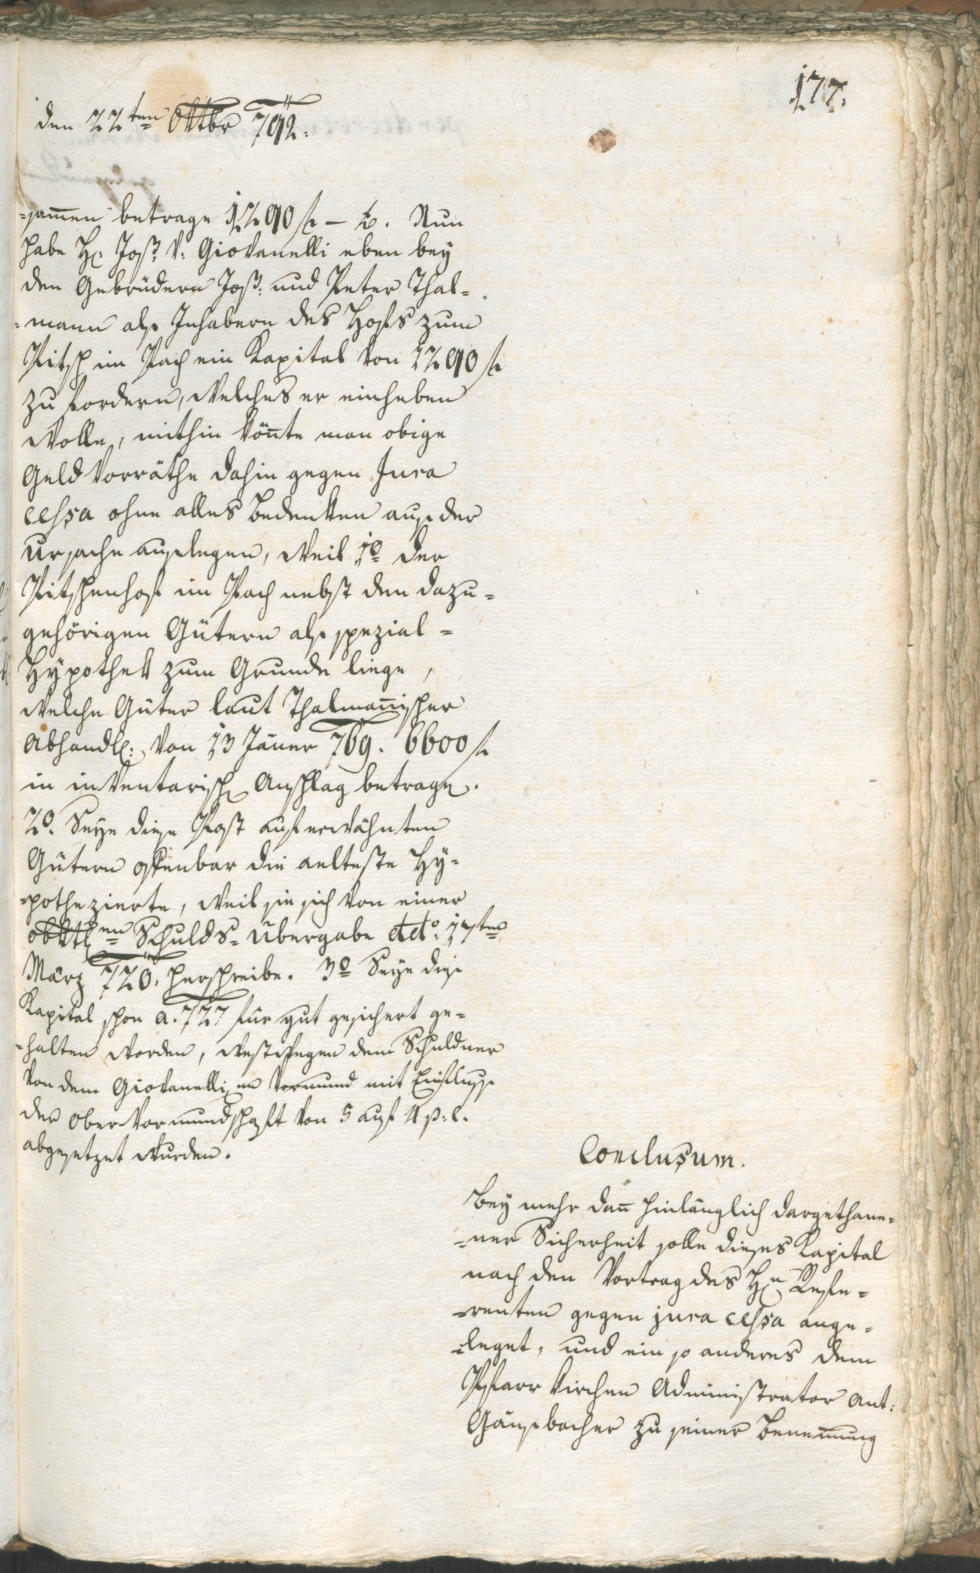 177.
den 22ten Oktbr 792.
-sam̄en betrage 1290 f – x. Nun
habe Hr Jos: v: Giovanelli eben bey
den Gebrüdern Jos: und Peter Thal-
-mann als Inhabern des Hofs zum
Pitsch im Pach ein Kapital von 1290 f
zu fordern, welches er einheben
wolle, mithin kön̄te man obige
Geld Vorräthe dahin gegen Jura
cessa ohne alles Bedenken aus der
Ursache auslegen, weil 1o der
Pitschenhof im Pach nebst den dazu-
gehörigen Gütern als spezial-
Hypothek zum Grunde liege,
welche Güter laut Thalman̄ischer
Abhandl: von 13 Jäner 769. 6600 f
in inventarisch Anschlag betrage.
2o. Seye diese Post auf erwähnten
Gütern offenbar die aelteste Hy-
-pothezierte, weil sie sich von einer
Schulds-Übergabe ddo. 17ten
März 720. herschreibe. 3o Seye dies
Kapital schon a. 727 für gut gesichert ge-
-halten worden, wesswegen dem Schuldner
von dem Giovanellien Vormund mit Einflusse
der Obervormundschaft von 5 auf 4 p: c.
abgesetzet wurden.
Conclusum.
Bey mehr dan̄ hinlänglich dargethane-
-ner Sicherheit solle dieses Kapital
nach den Vortrag des Hn Refe-
-renten gegen jura cessa ange-
-leget, und ein so anderes dem
Pfarrkirchen Administrator Ant:
Gänsbacher zu seiner Benem̄ung